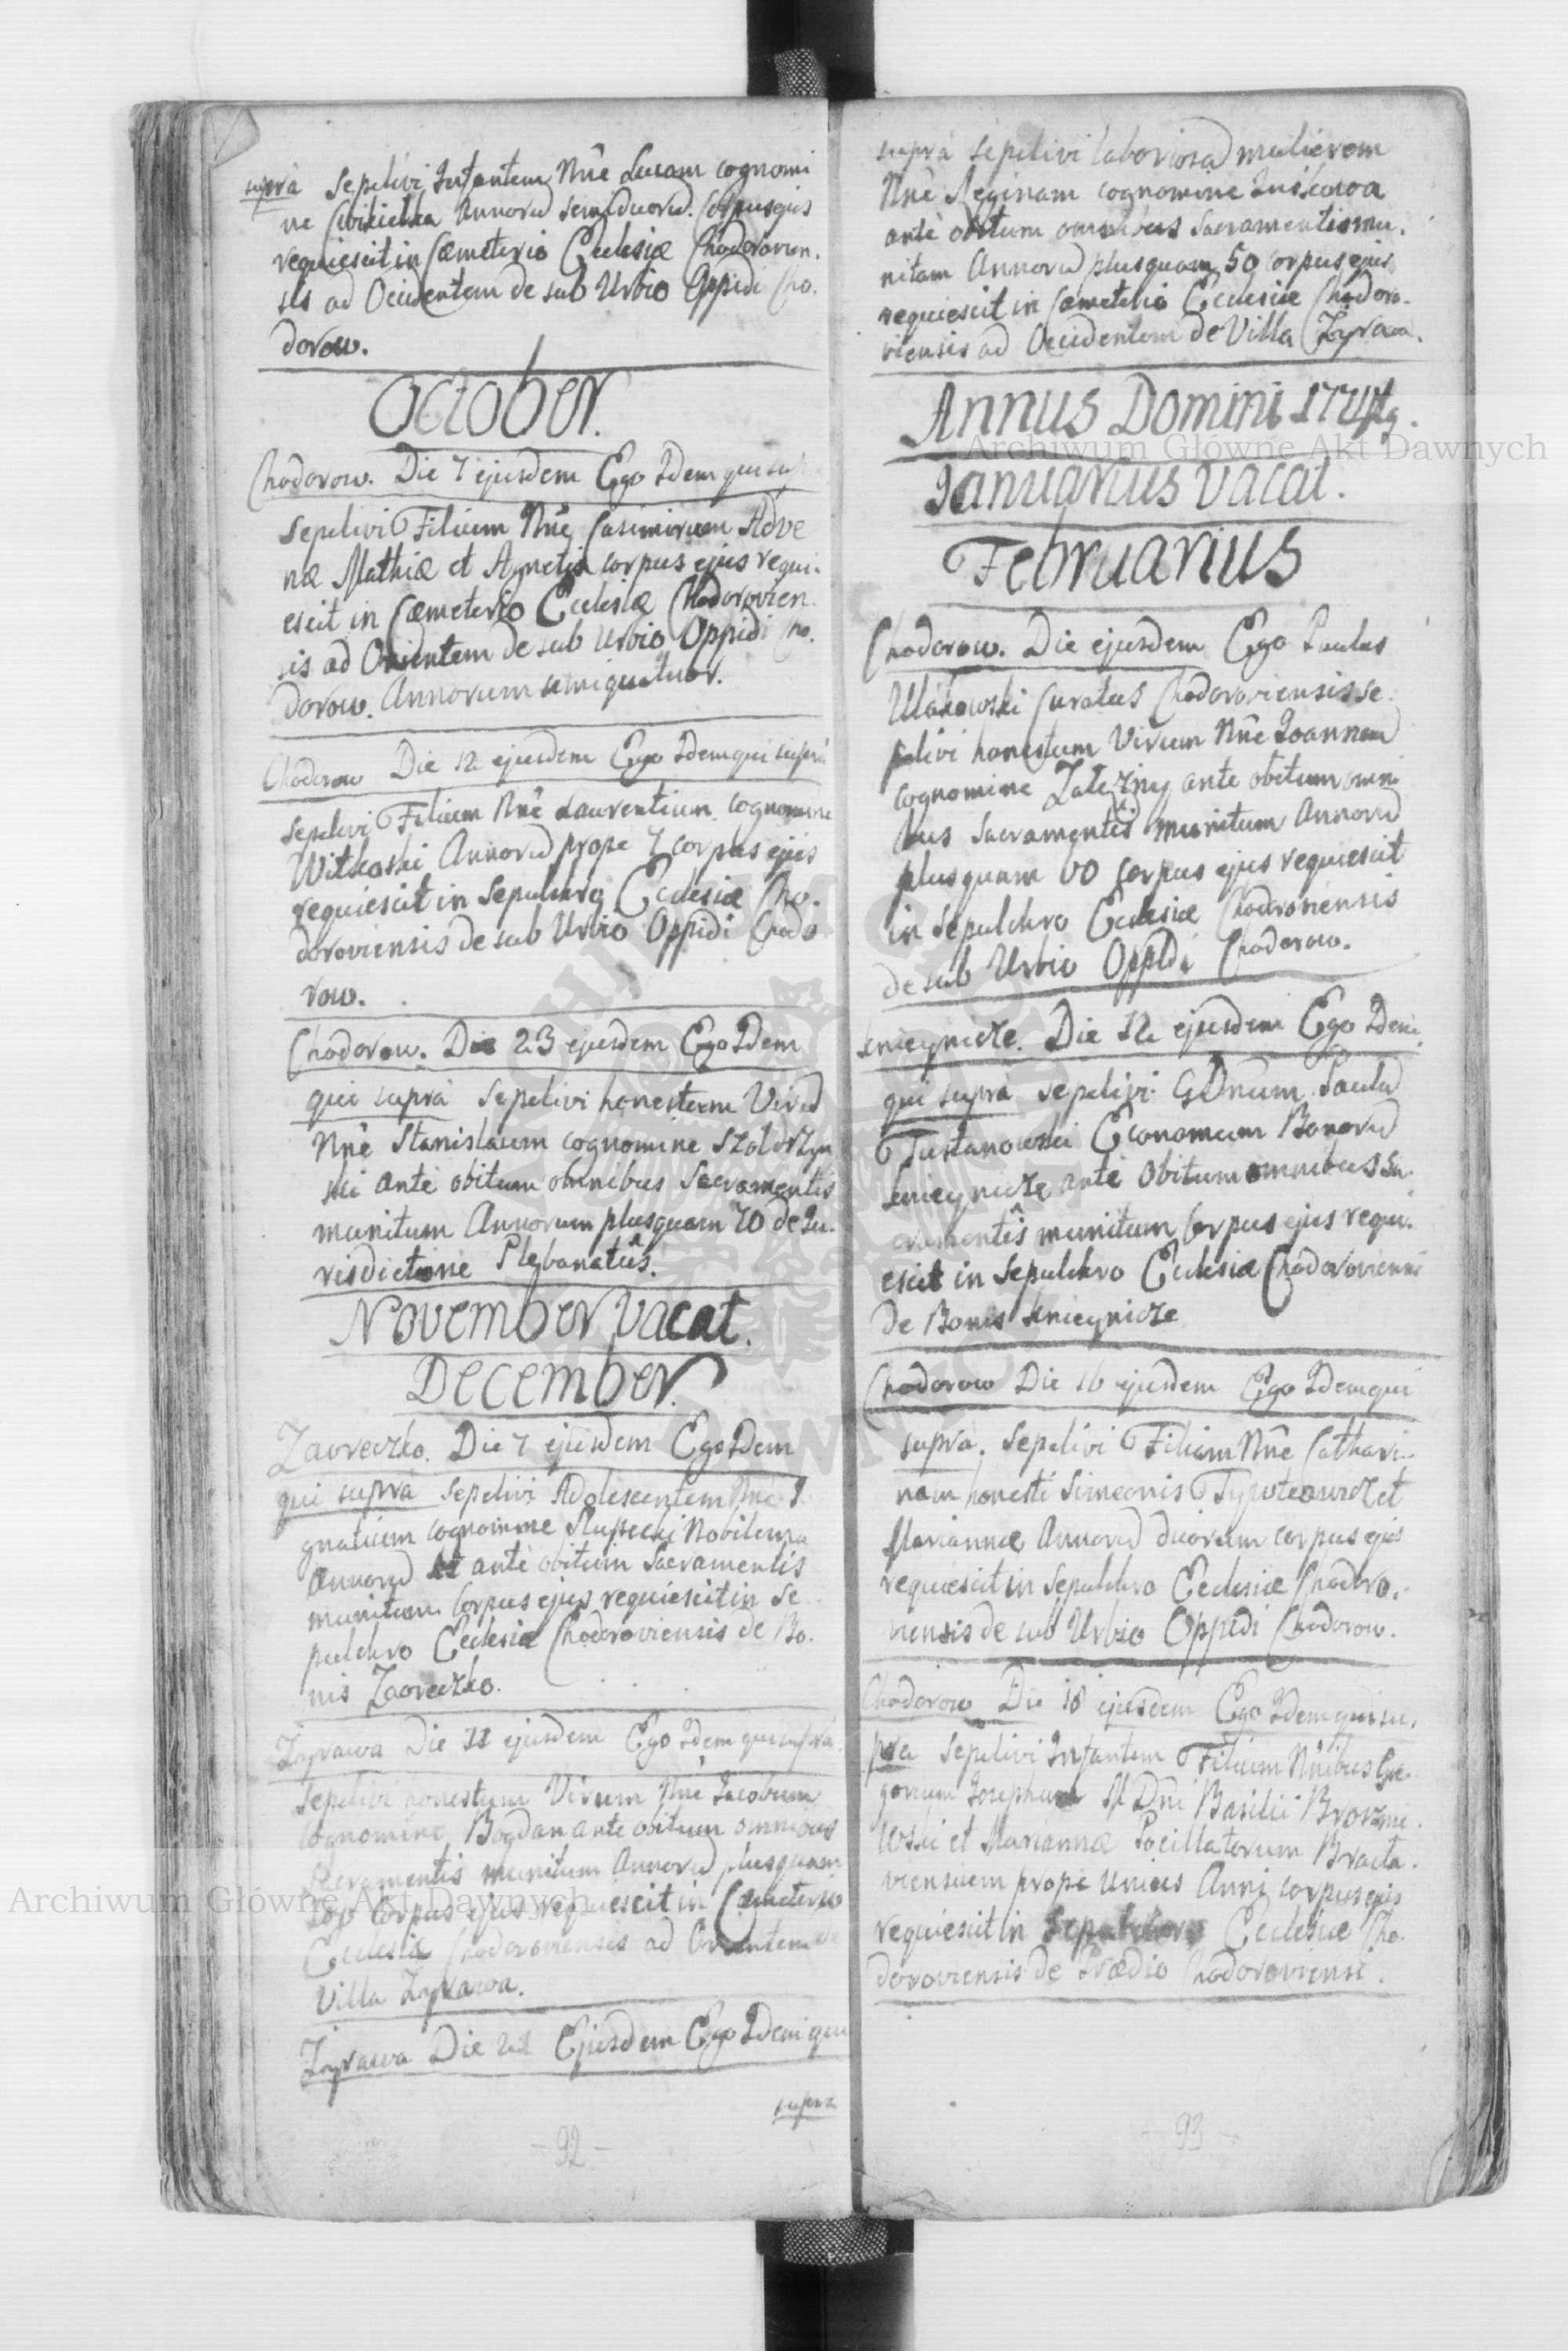 supra sepelivi Infantem Nnê Lucam cognomi
ne Cwikielka Annorū semiduorū. Corpus ejus
requiescit in Cæmeterio Ecclesiæ Chodorovien.
sis ad Occidentem de sub Urbio Oppidi Cho.
dorow.
October.
Chodorow. Die 7 ejusdem Ego Idem qui sup
sepelivi Filium Nnê Casimirum Adve
næ Mathiæ et Agnetis corpus ejus requi.
escit in Cæmeterio Ecclesiæ Chodorovien.
sis ad Orientem de sub Urbio Oppidi Cho.
dorow. Annorum semiquatuor.
Chodorow Die 12 ejusdem Ego Idem qui suprà
sepelivi Filium Nnê Laurentium cognomine
Witkoski Annorū prope 7 corpus ejus
requiescit in Sepulchro Ecclesiæ Cho.
doroviensis de sub Urbio Oppidi Chodo
row.
Chodorow. Die 23 ejusdem Ego Idem
qui suprà sepelivi honestum Virū
Nnê Stanislaum cognomine Szoldrzyn
ski antè obitum omnibus Sacramentis
munitum Annorum plusquam 70 de Ju.
risdictione Plebanatûs.
November vacat.
December.
Zaoreczko. Die 7 ejusdem Ego Idem
qui suprà sepelivi Adolescentem Nnê I.
gnatium cognomine Nobilem
Annorū antè obitum Sacramentis
munitum Corpus ejus requiescit in Se.
pulchro Ecclesiæ Chodoroviensis de Bo.
nis Zaoreczko.
Zyrawa Die 11 ejusdem Ego Idem qui supra.
sepelivi honestum Virum Nnê Jacobum
cognomine Bogdan ante obitum omnibus
Sacramentis munitum Annorū plusquam
corpus ejus requiescit in Cæmeterio
Ecclesiæ Chodoroviensis ad Orientem de
Villa Zyrawa.
Zyrawa Die 22 Ejusdem Ego Idem qui
supra
92
supra sepelivi laboriosā mulierem
Nnê Reginam cognomine
antè obitum omnibus Sacramentis mu.
nitam Annorū plusquam 50 corpus ejus
requiescit in Cæmeterio Ecclesiæ Chodoro.
viensis ad Occidentem de Villa Zyrawa.
Annus Domini 1724tg.
Ianuarius vacat.
Februarius
Chodorow. Die ejusdem Ego Paulus
Ulakowski Curatus Chodoroviensis se.
pelivi honestum Virum Nnê Joannem
cognomine Zalezny ante obitum omni
bus Sacramentis munitum Annorū
plusquam 60 corpus ejus requiescit
in Sepulchro Ecclesiæ Chodoroviensis
de sub Urbio Oppidi Chodorow.
Knieynicze. Die 12 ejusdem Ego Idem
qui supra sepelivi GDnum Paulū
Tustanowski Economum Bonorū
Knieynicze antè obitum omnibus Sa.
cramentîs munitum Corpus ejus requi.
escit in Sepulchro Ecclesiæ Chodoroviensis
de Bonis Knieynicze
Chodorow Die 16 ejusdem Ego Idem qui
supra. sepelivi Filiam Nnê Cathari.
nam honesti Simeonis et
Mariannæ Annorū duorum corpus ejus
requiescit in Sepulchro Ecclesiæ Chodoro.
viensis de sub Urbio Oppidi Chodorow.
Chodorow Die 18 ejusdem Ego Idem qui su.
pra sepelivi Infantem Filium Nnibus Gre.
gorium Josephum M Dni Basilii
et Mariannæ Pocillatorum Bracła.
viensium prope unius Anni corpus ejus
requiescit in Sepulchro Ecclesiæ Cho.
doroviensis de Prædio Chodoroviensi.
93
Archiwum Główne Akt Dawnych
Archiwum Główne Akt Dawnych